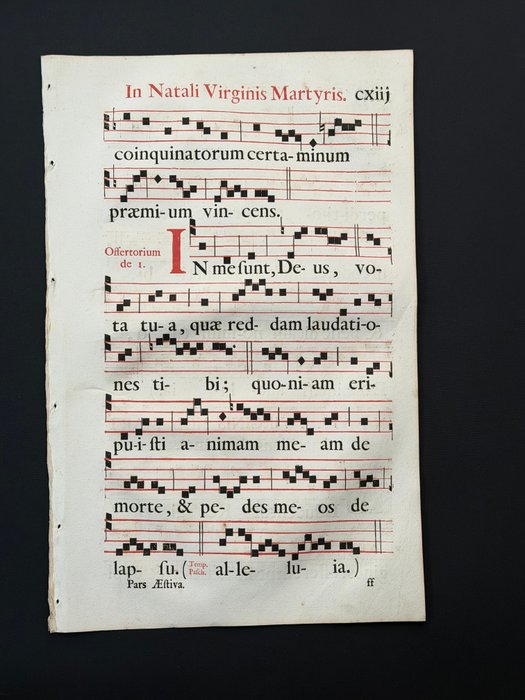 In Natali Virginis Martyris. cxiij
coinquinatorum certa- minum
præmi-um vin- cens.
Offertorium
de 1.
IN me ſunt, De- us, vo-
ta tu- a, quæ red- dam laudati-o-
nes ti- bi; quo-ni-am eri-
pu-i-ſti a- nimam me- am de
morte, & pe- des me- os de
lap- ſu. (Temp. Paſch. al-le- lu- ia.)
Pars Æſtiva. ff